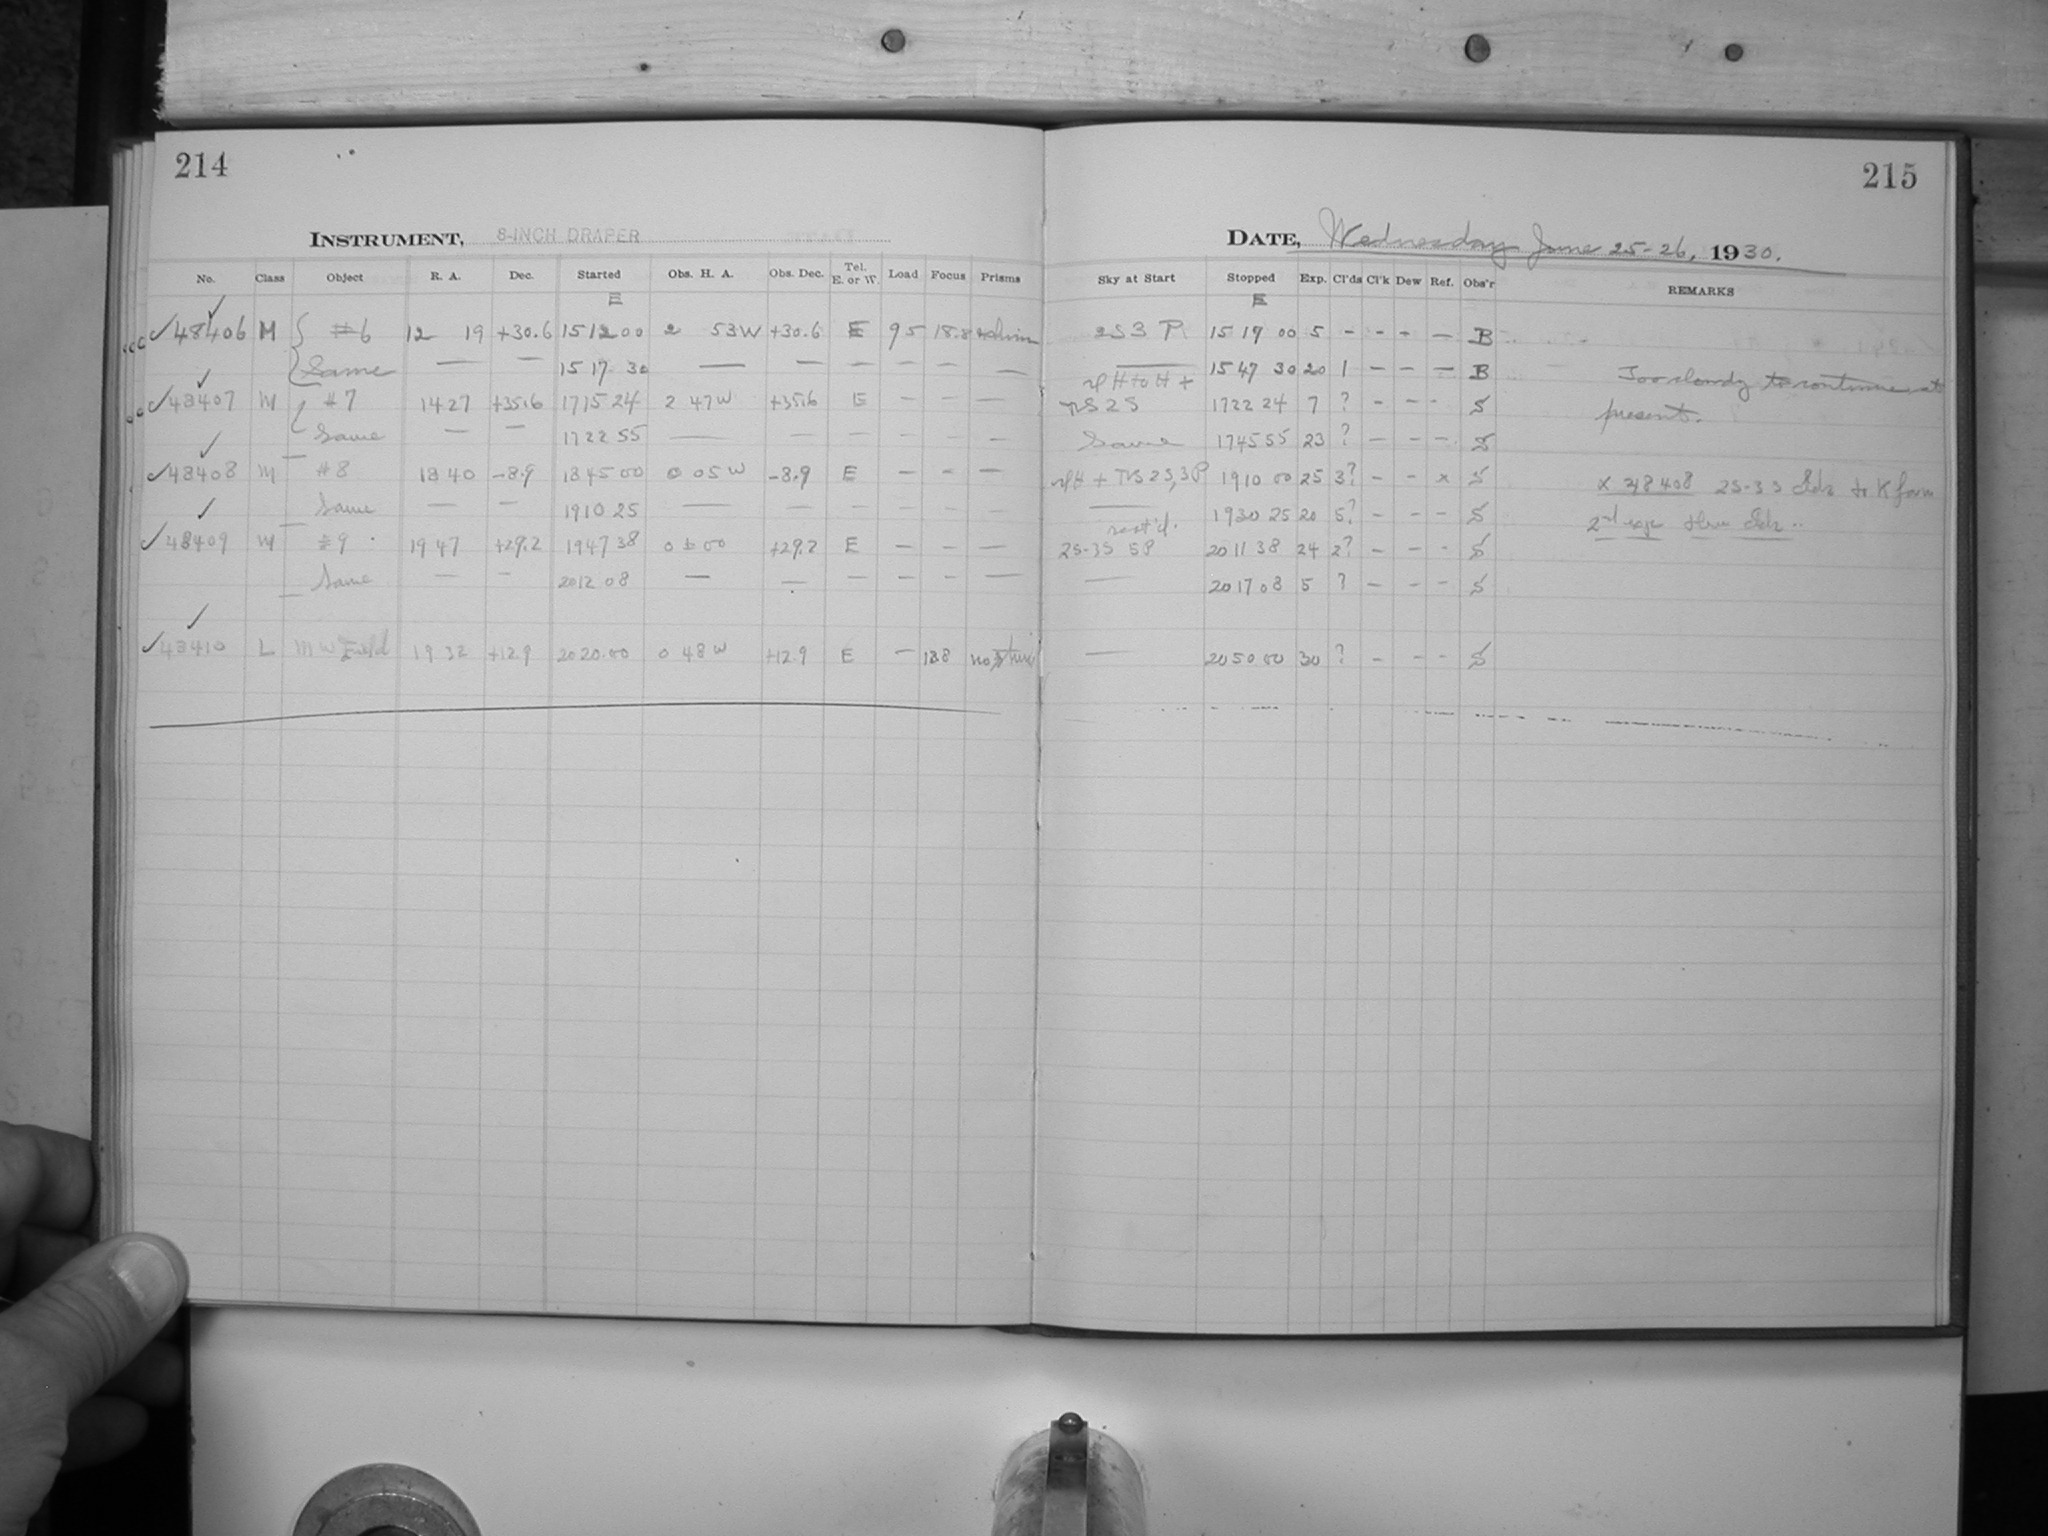 214
215
INSTRUMENT, 8-INCH DRAPER
DATE, Wednesday June 25-26, 1930.
No. Class Object R. A. Dec. Started Obs. H. A. Obs. Dec. Tel. E. or W. Load Focus Prisms Sky at Start Stopped Exp. Cl'ds Cl'k Dew Ref. Obs'r REMARKS
E E
✓48406 M #6 12 19 +30.6 15 12 00 2 53W +30.6 E 95 18.8 2S3 P 15 17 00 5 - - - - B
Same — — 15 17 30 — — — — — — — 15 47 30 20 1 - - - B Too cloudy to continue at
✓48407 M #7 14 27 +35.6 17 15 24 2 47W +35.6 E - - - 2S 17 22 24 7 ? - - - S present.
Same — — 17 22 55 — — — — — — Same 17 45 55 23 ? - - - S
✓48408 M #8 18 40 -8.9 18 45 00 0 05 W -8.9 E - - - 2S,3P 19 10 00 25 3? - - x S x 48408 2S-3S
Same — — 19 10 25 — — — — — — — 19 30 25 20 5? - - - S 2nd exp
✓48409 M #9 19 47 +29.2 19 47 38 0 ± 00 +29.2 E - - - 2S-3S 5P 20 11 38 24 2? - - - S
Same — — 20 12 08 — — — — — — — 20 17 08 5 ? - - - S
✓48410 L MW Field 19 32 +12.9 20 20 00 0 48 W +12.9 E - 188 no — 20 50 00 30 ? - - - S